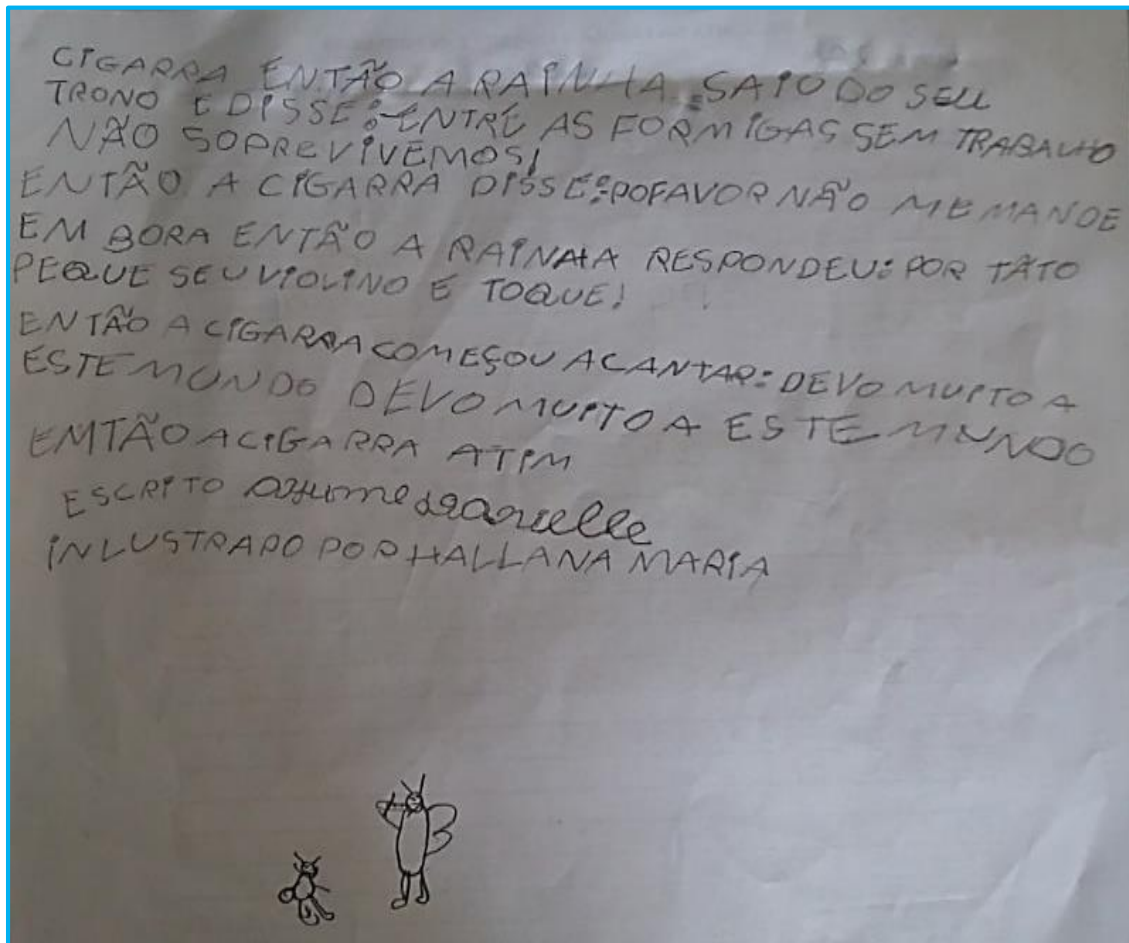 CIGARRA ENTÃO A RAINHA SAIO DO SEU
TRONO E DISSE: ENTRE AS FORMIGAS SEM TRABALHO
NÃO SOPREVIVEMOS!
ENTÃO A CIGARRA DISSE: POFAVOR NÃO ME MANDE
EM BORA ENTÃO A RAINHA RESPONDEU: POR TÃTO
PEQUE SEU VIOLINO E TOQUE!
ENTÃO A CIGARRA COMEÇOU A CANTAR: DEVO MUITO A
ESTE MUNDO DEVO MUITO A ESTE MUNDO
EMTÃO A CIGARRA
ESCRITO
INLUSTRADO POR HALLANA MARIA